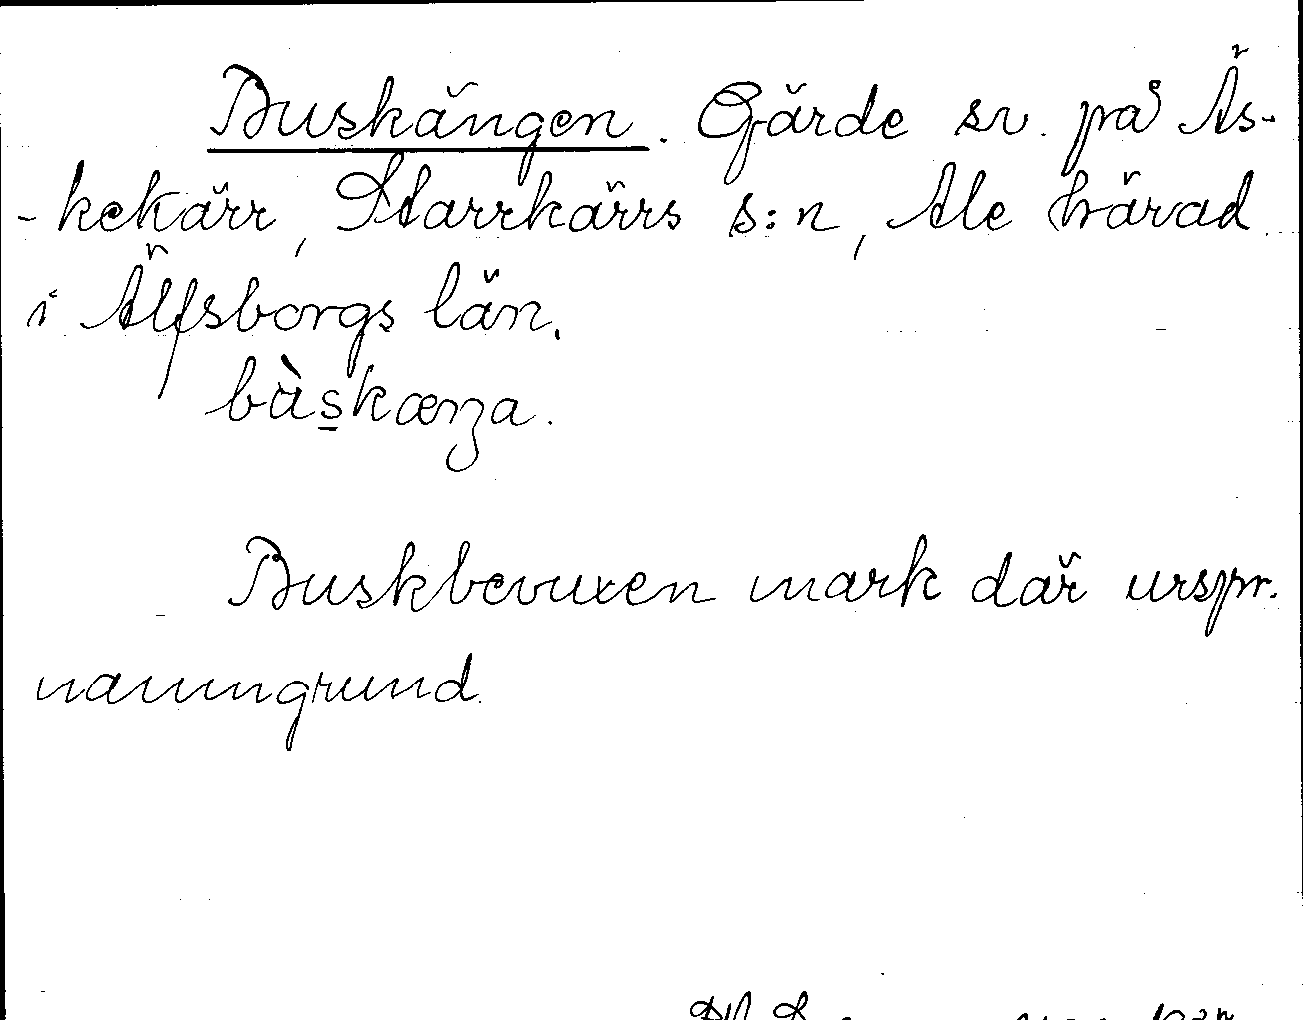 Buskängen. Gärde sv. på Äs-
-kekärr, Starrkärrs s:n, Ale härad
i Älfsborgs län.
bùskæŋa.
Buskbevuxen mark där urspr.
namngrund.